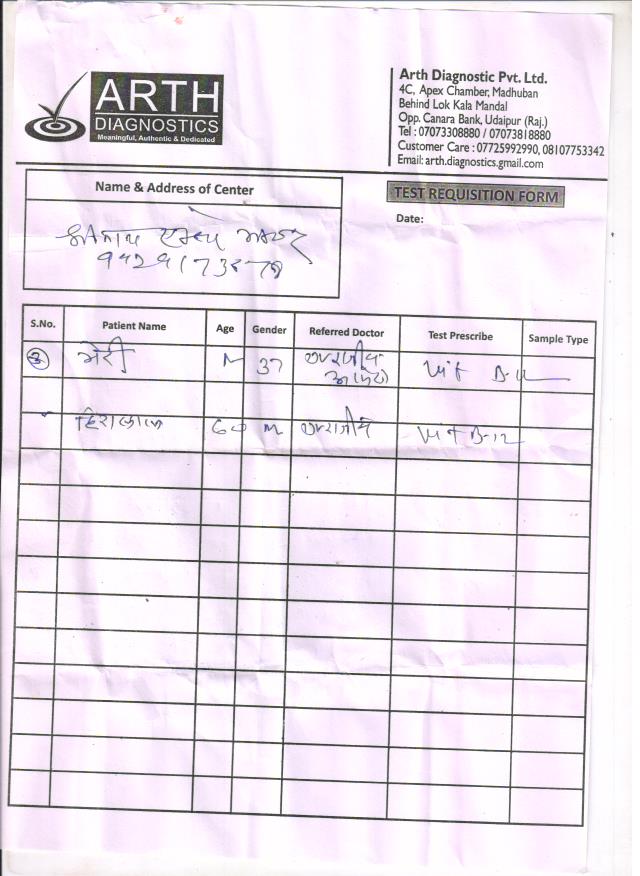 ARTH
DIAGNOSTICS
Meaningful, Authentic & Dedicated
Arth Diagnostic Pvt. Ltd.
4C, Apex Chamber, Madhuban
Behind Lok Kala Mandal
Opp. Canara Bank, Udaipur (Raj.)
Tel : 07073308880 / 07073818880
Customer Care : 07725992990, 08107753342
Email: arth.diagnostics.gmail.com
Name & Address of Center
TEST REQUISITION FORM
Date:
S.No. Patient Name Age Gender Referred Doctor Test Prescribe Sample Type
M 37 Vit B-12
60 M Vit B-12